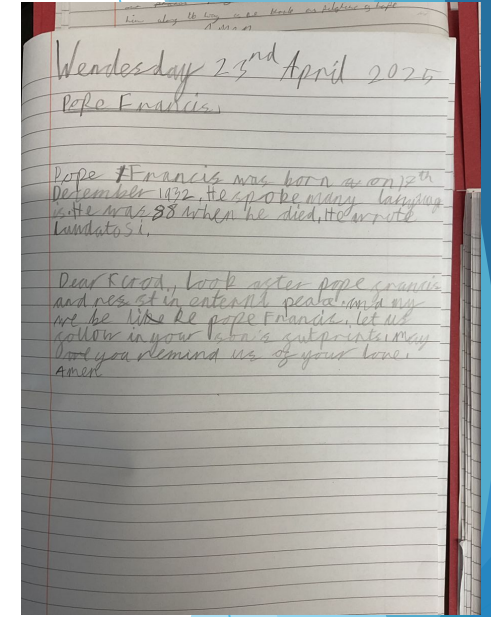 him along
Amen
Wendesday 23nd April 2025
Pope Francis.
Pope Francis was born a on 17th
December 1932, He spoke many languag
is. He was 88 when he died, He wrote
Laudatosi.
Dear God, Look after pope francis
and rest in enternl peace. and my
we be like Re pope Francis, let us
follow in your son's futprints, may
you remind us of your love.
Amen